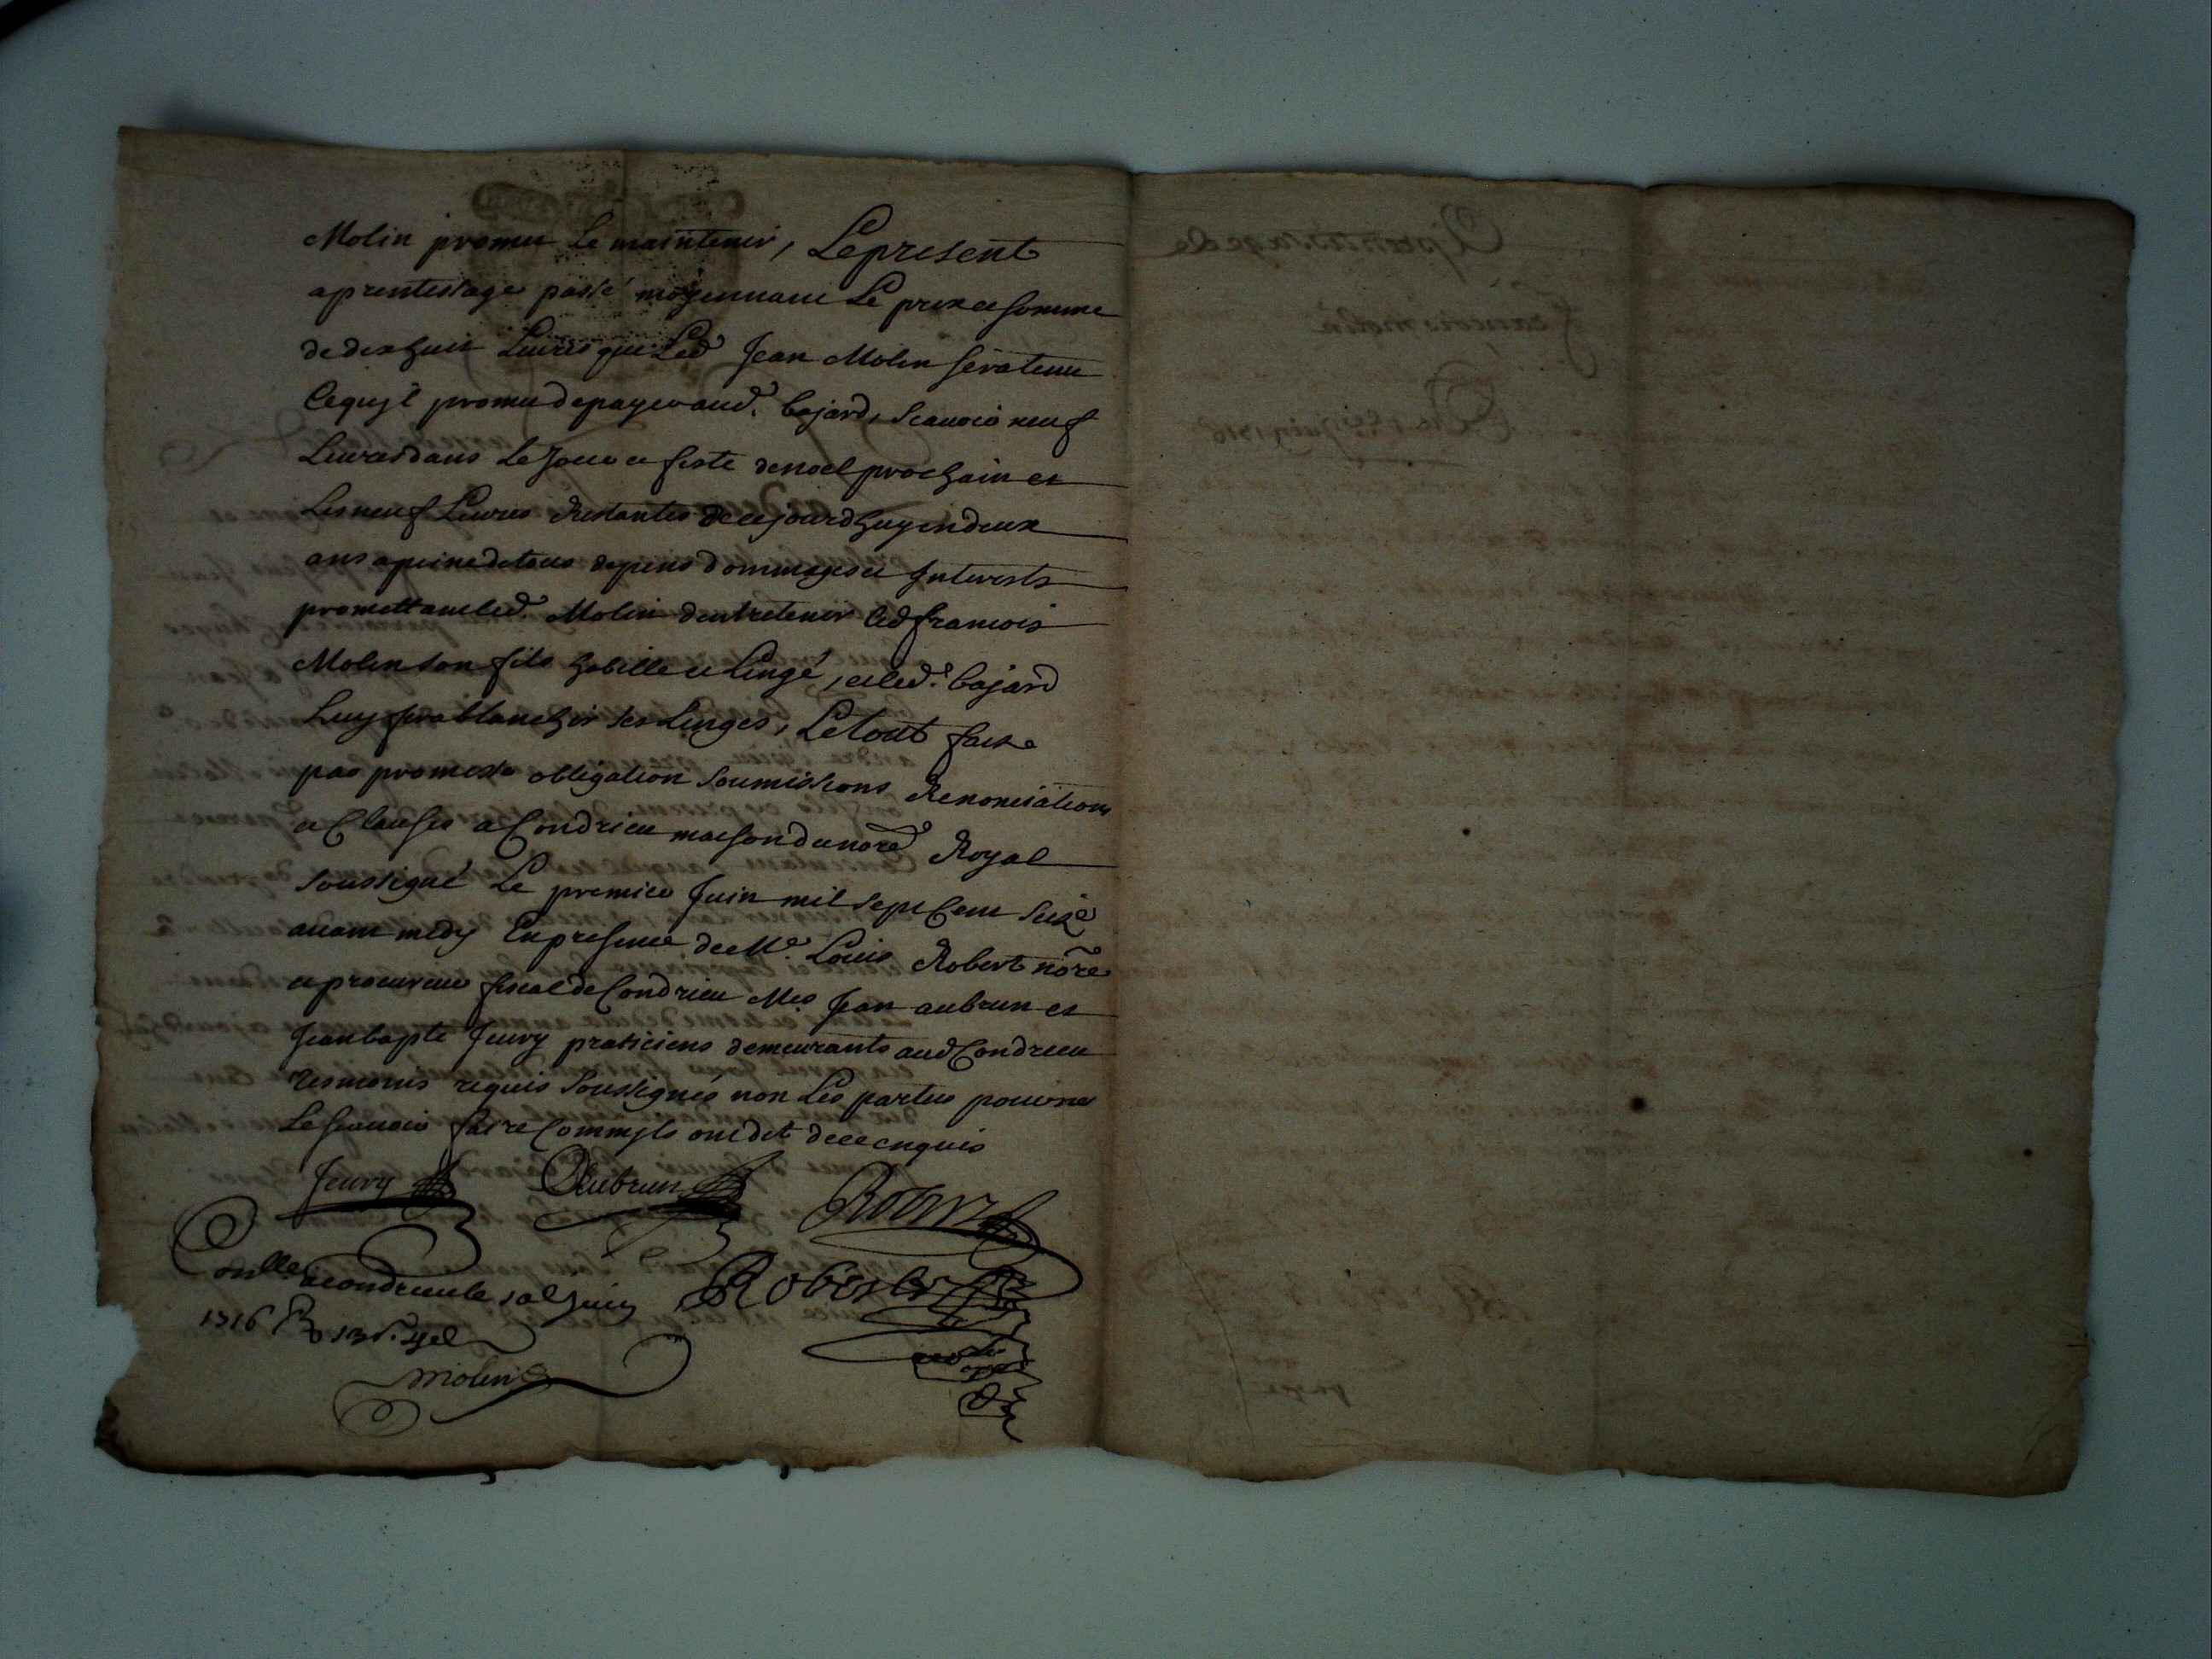 Molin promet Le maintenir, Le present
aprentissage passé moyennant Le prix et somme
de dix huit Livres que Led Jean Molin sera tenu
Ce quil promet de payer aud. bajard, scavoir neuf
Livres dans Le Jour et feste de noel prochain et
Les neuf Livres Restantes de cejourdhuy en deux
ans a peine de tous depens dommages et Interests
promettant led. Molin dentretenir led francois
Molin son fils habillé et Lingé, et led. bajard
Luy fera blanchir ses Linges, Le tout fait
par promesse obligation soumissions Renonciations
et Clauses a Condrieu maison du nore Royal
soussigné Le premier Juin mil sept Cent seize
avant midy En presence de Me. Louis Robert nore
et procureur fiscal de Condrieu Mes Jean aubrun et
Jean bapte Jeury praticiens demeurants aud Condrieu
tesmoins requis soussignés non Les parties pour ne
Le scavoir faire Comm ils ont dit de ce enquis
Jeury Aubrun Robert
a condrieu le Juin Robert
1716
Molin
Aprentissage de
francois molin
Du 1er Juin 1716